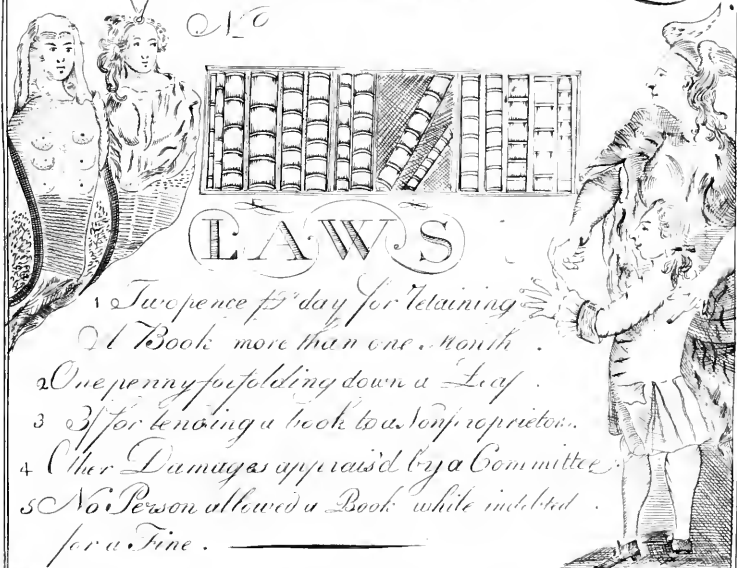 No
LAWS
1 Twopence pr day for retaining
A Book more than one Month .
2 One penny for folding down a Leaf .
3 3/ for lending a book to a Nonproprietor.
4 Other Damages apprais'd by a Committee
5 No Person allowed a Book while indebted .
for a Fine .